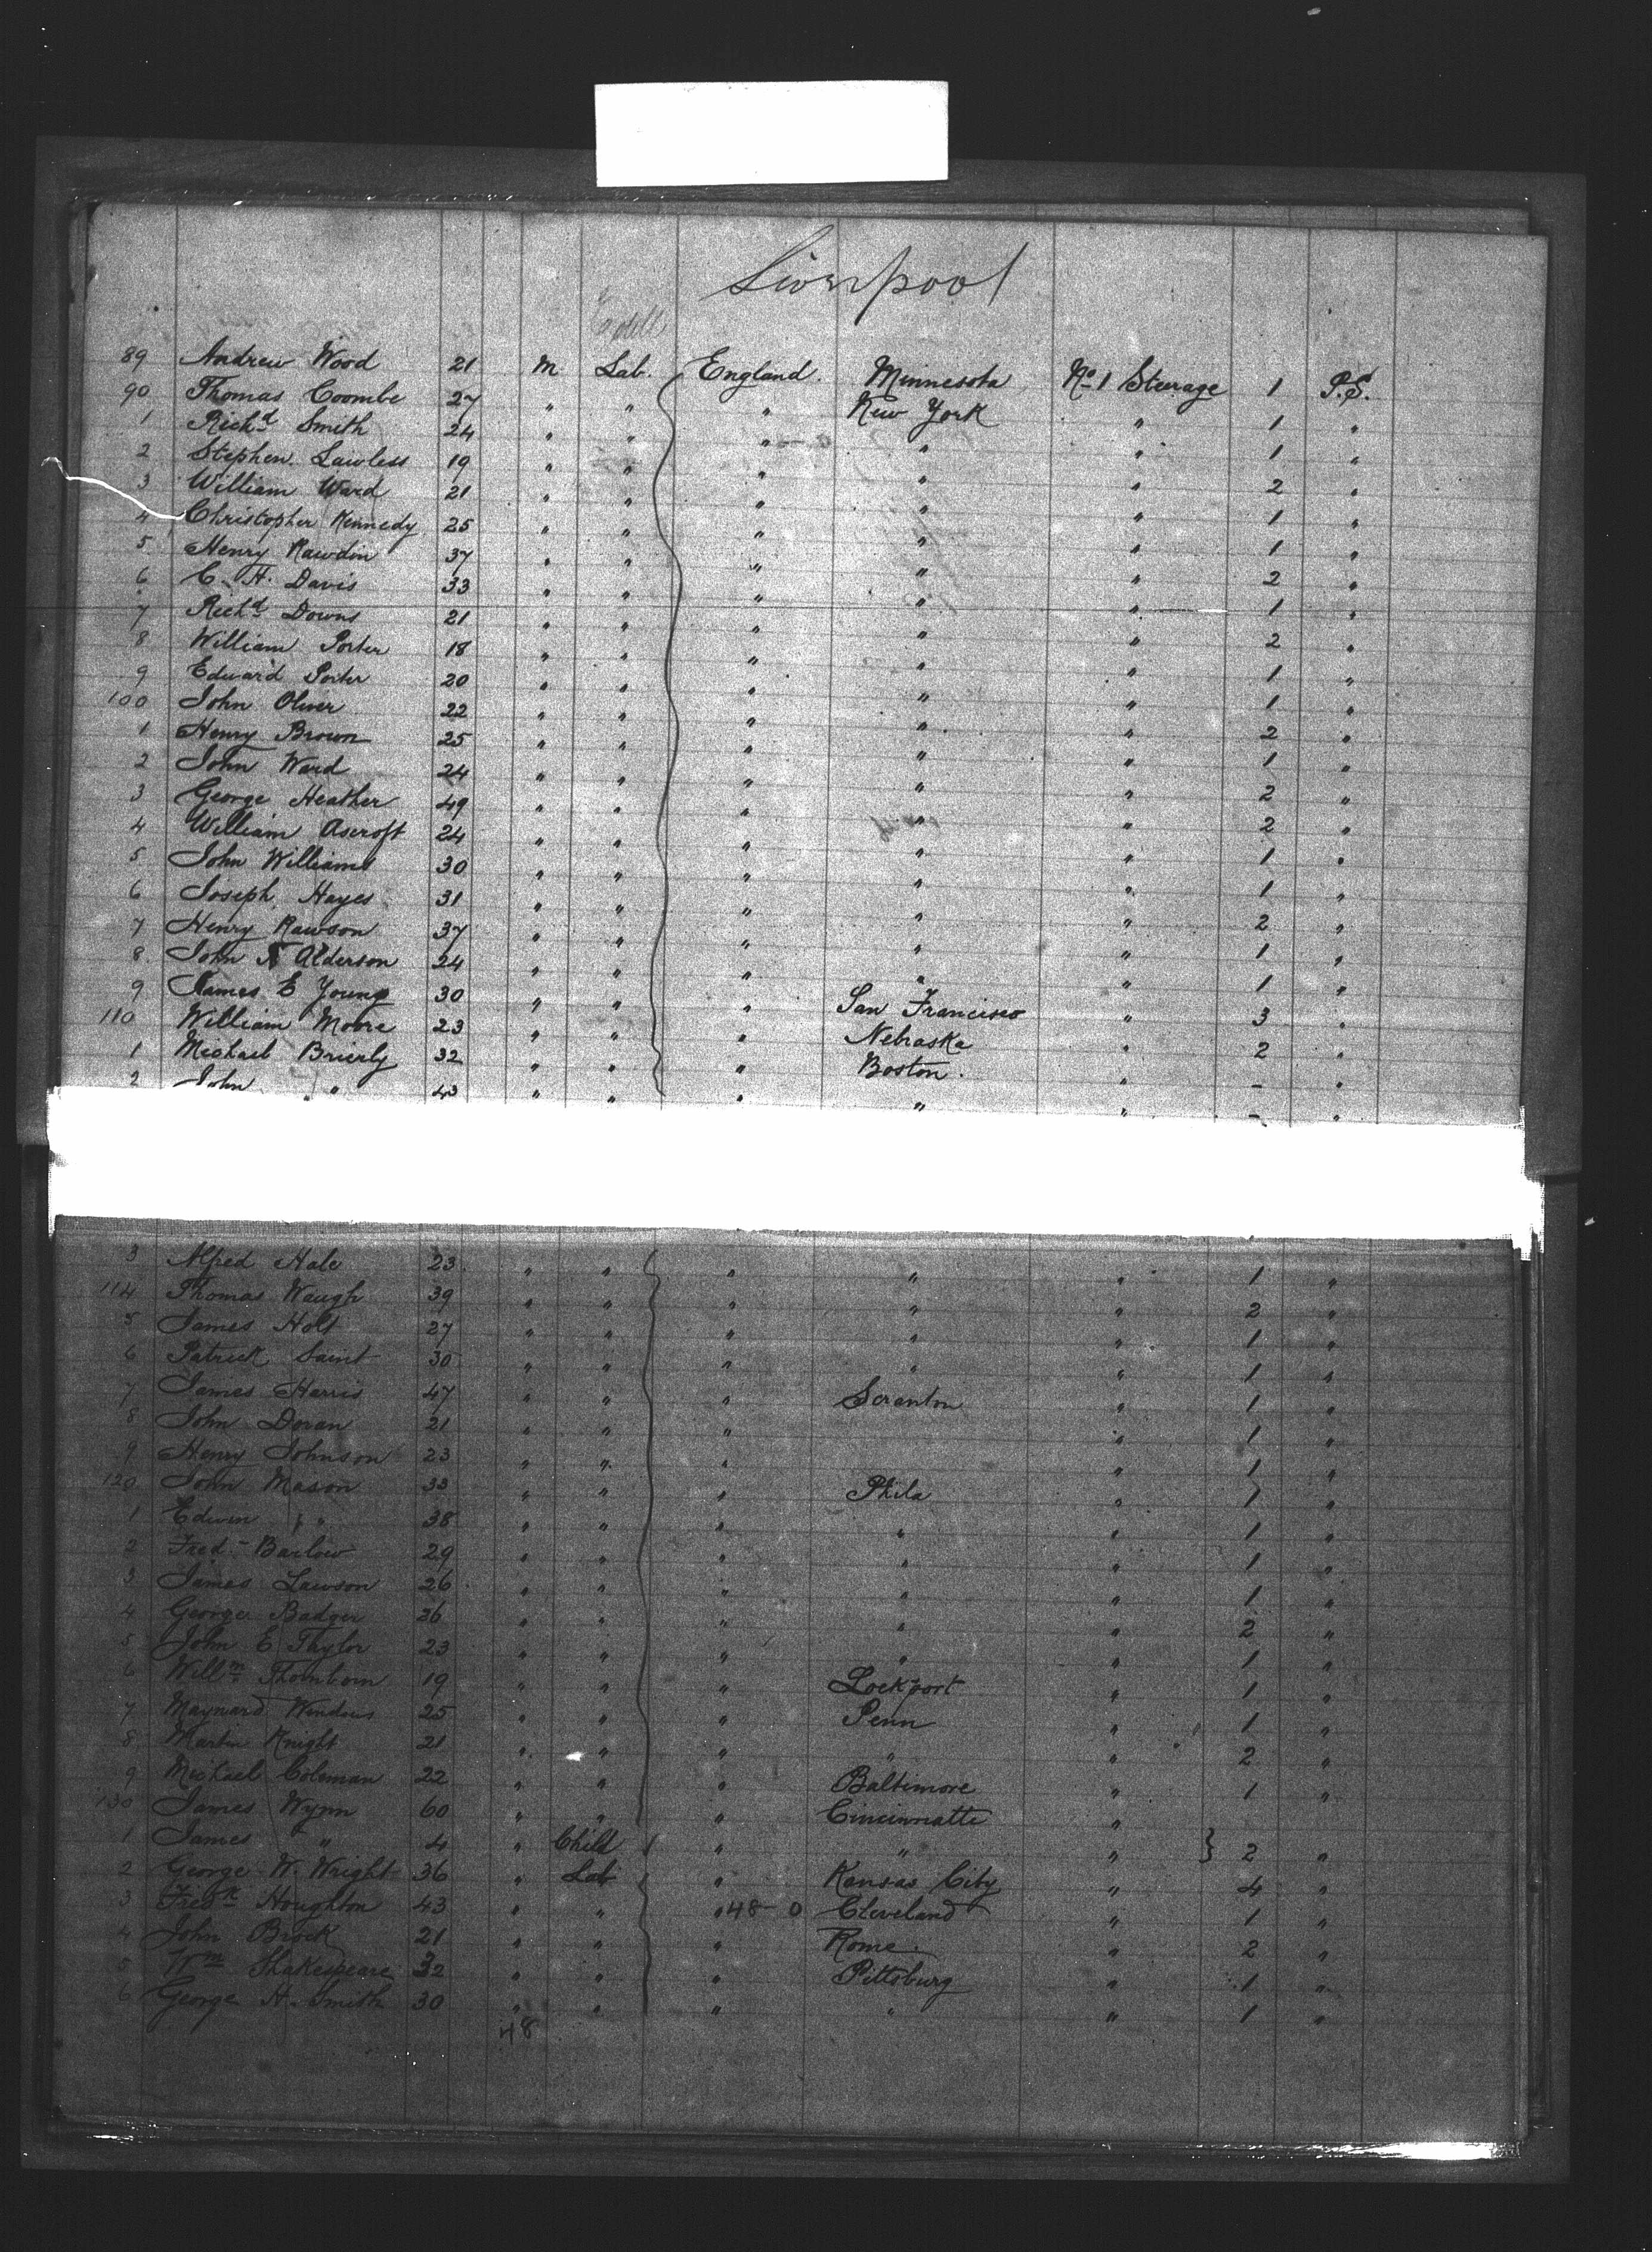 Liverpool
89 Andrew Wood 21 m Lab. England. Minnesota No 1 Steerage 1 P.S.
90 Thomas Coombe 27 " " " New York " 1 "
1 Richd Smith 24 " " " " " 1 "
2 Stephen Lawless 19 " " " " " 2 "
3 William Ward 21 " " " " " 1 "
4 Christopher Kennedy 25 " " " " " 1 "
5 Henry Rawdin 37 " " " " " 2 "
6 C. H. Davis 33 " " " " " 1 "
7 Richd Downs 21 " " " " " 2 "
8 William Porter 18 " " " " " 1 "
9 Edward Porter 20 " " " " " 1 "
100 John Oliver 22 " " " " " 2 "
1 Henry Brown 25 " " " " " 1 "
2 John Ward 24 " " " " " 2 "
3 George Heather 49 " " " " " 2 "
4 William Ascroft 24 " " " " " 1 "
5 John Williams 30 " " " " " 1 "
6 Joseph Hayes 31 " " " " " 2 "
7 Henry Rawson 37 " " " " " 1 "
8 John Alderson 24 " " " " " 1 "
9 James E Young 30 " " " San Francisco " 3 "
110 William Moore 23 " " " Nebraska " 2 "
1 Michael Brierly 32 " " " Boston. " - "
2 John " 43 " " " " " - "
3 Alfred Hale 23 " " " " " 1 "
114 Thomas Waugh 39 " " " " " 2 "
5 James Holt 27 " " " " " 1 "
6 Patrick Saint 30 " " " " " 1 "
7 James Harris 47 " " " Scranton " 1 "
8 John Doran 21 " " " " 1 "
9 Henry Johnson 23 " " " " 1 "
120 John Mason 33 " " " Phila " 1 "
1 Edwin " 38 " " " " " 1 "
2 Fred Barlow 29 " " " " " 1 "
3 James Lawson 26 " " " " " 1 "
4 George Badger 36 " " " " " 2 "
5 John E Taylor 23 " " " " " 1 "
6 Willm Thornborn 19 " " " Lockport " 1 "
7 Maynard 25 " " " Penn " 1 "
8 Martin Knight 21 " " " " " 2 "
9 Michael Coleman 22 " " " Baltimore " 1 "
130 James Wynn 60 " " " Cincinnatte "
1 James " 4 " Child " " " } 2 "
2 George W. Wright 36 " Lab " Kansas City " 4 "
3 Fredk Houghton 43 " " " 48-0 Cleveland " 1 "
4 John Brock 21 " " " Rome. " 2 "
5 Wm Shakespeare 32 " " " Pittsburg " 1 "
6 George H. Smith 30 " " " " " 1 "
48